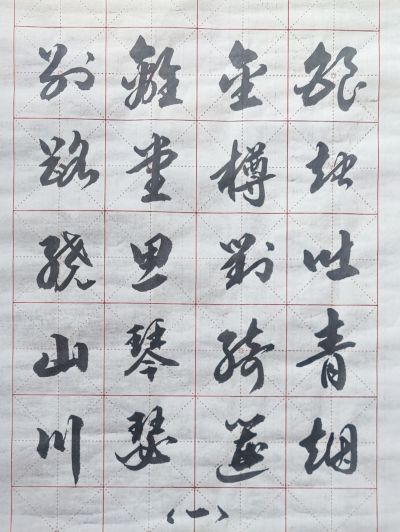 銀烛吐青烟
金樽對綺筵
離堂思琴瑟
别路繞山川
（一）